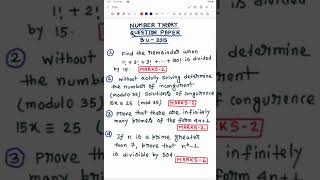 NUMBER THEORY
QUESTION PAPER
BU-2015
1 Find the remainder when
1! + 2! + 3! + ... + 100! is divided
by 15. MARKS-2
2 Without actually solving determine
the number of incongruent
(modulo 35) solutions of congruence
15x ≡ 25 (mod 35) MARKS-2
3 Prove that there are infinitely
many primes of the form 4n+1
MARKS-2
4 If n is a prime greater
than 7, prove that n⁶-1
is divisible by 504.
MARKS-6
1! + 2!
by 15.
2 Without
the num
(modul
15x ≡ 25
3 Prove
many
determine
ent
congruence
KS-2
infinitely
4n+1